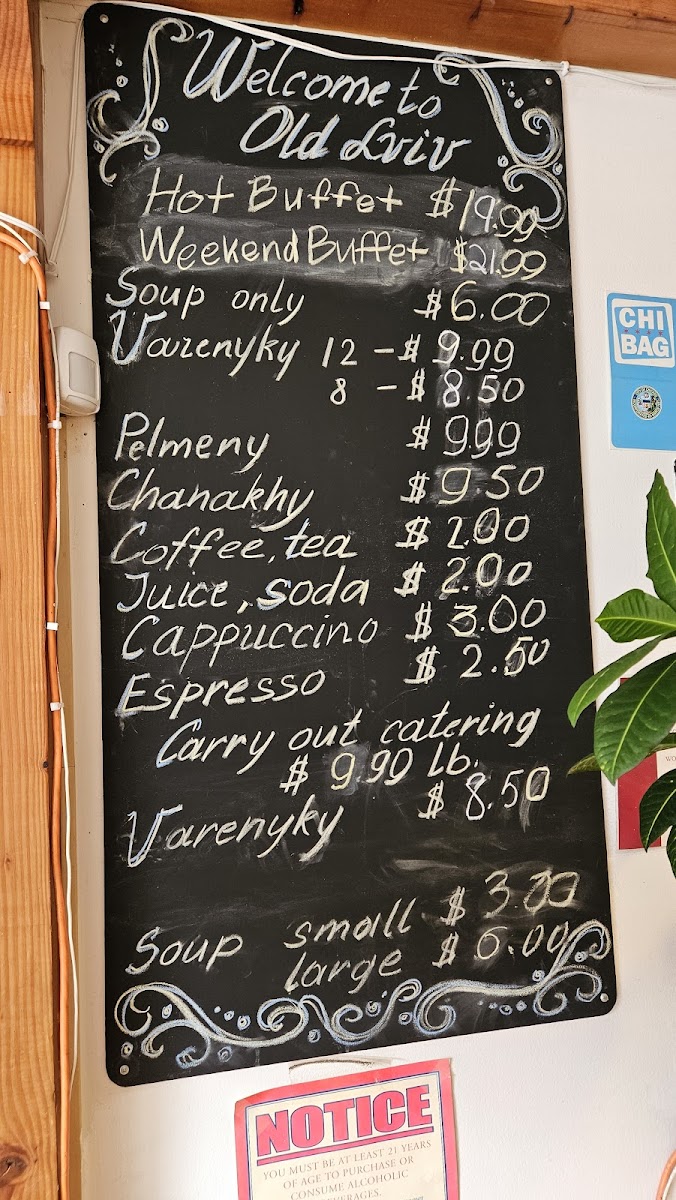 Welcome to
Old Lviv
Hot Buffet $19.99
Weekend Buffet $21.99
Soup only $6.00
Varenyky 12 - $9.99
8 - $8.50
Pelmeny $9.99
Chanakhy $9.50
Coffee, tea $2.00
Juice, soda $2.00
Cappuccino $3.00
Espresso $2.50
Carry out catering
$9.90 lb.
Varenyky $8.50
Soup small $3.00
large $6.00
CHI
BAG
NOTICE
YOU MUST BE AT LEAST 21 YEARS
OF AGE TO PURCHASE OR
CONSUME ALCOHOLIC
BEVERAGES.